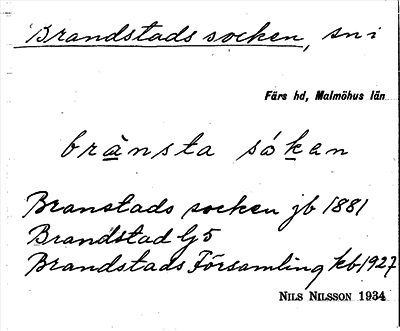 Brandstads socken, sn i
Färs hd, Malmöhus län
bränsta sókan
Branstads socken jb 1881
Brandstad Gj5
Brandstads Församling kb 1927
NILS NILSSON 1934